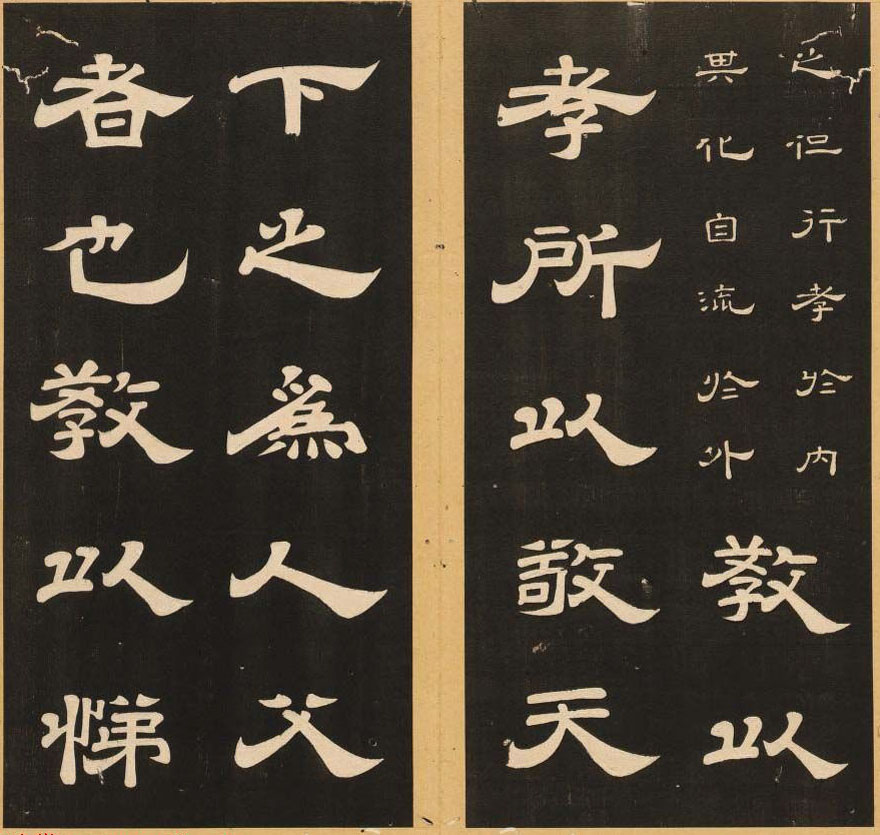 之但行孝於内
其化自流於外
教以
孝所以敬天
下之爲人父
者也教以悌